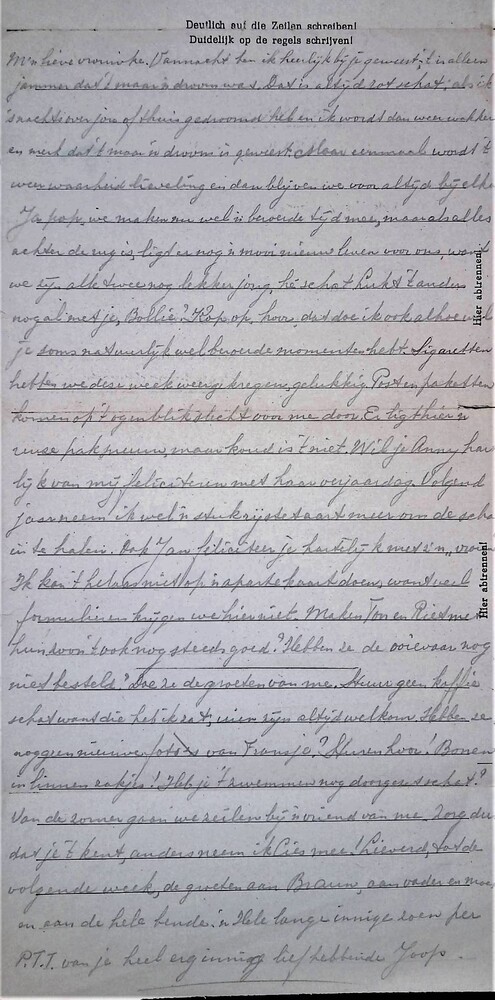 Deutlich auf die Zeilen schreiben!
Duidelijk op de regels schrijven!
M'n lieve vrouwke. Vannacht ben ik heerlijk bij je geweest, 't is alleen
jammer dat 't maar 'n droom was. Dat is altijd rot schat, als ik
's nachts over jou of thuis gedroomd heb en ik wordt dan weer wakker
en merk dat 't maar 'n droom is geweest. Maar eenmaal wordt 't
weer waarheid lieveling en dan blijven we voor altijd bij elkaar
Ja pop, we maken nu wel 'n beroerde tijd mee, maar als alles
achter de rug is, ligt er nog 'n mooi nieuw leven voor ons, want
we zijn alle twee nog lekker jong, hé schat. Lukt 't anders
nogal met je, Bollie? Kop op, hoor, dat doe ik ook alhoewel
je soms natuurlijk wel beroerde momenten hebt. Sigaretten
hebben we deze week weer gekregen, gelukkig. Post en paketten
komen op 't ogenblik slecht voor me door. Er ligt hier 'n
reuse pak sneeuw, maar koud is 't niet. Wil je Anny har
lijk van mij feliciteren met haar verjaardag. Volgend
jaar neem ik wel 'n stuk rijstetaart meer om de scha
in te halen. Ook Jan feliciteer je hartelijk met z'n vrouw
Ik kan 't helaas niet op 'n aparte kaart doen, want veel
formulieren krijgen we hier niet. Maken Ton en Riet met
hun zoon 't ook nog steeds goed? Hebben ze de ooievaar nog
niet besteld? Doe ze de groeten van me. Stuur geen koffie
schat want die heb ik zat, uien zijn altijd welkom. Hebben ze
nog geen nieuwe foto's van Fransje? Sturen hoor! Bonen
in linnen zakjes! Heb je 't zwemmen nog doorgezet schat?
Van de zomer gaan we zeilen bij 'n vriend van me. Zorg dus
dat je 't kent, anders neem ik Cies mee! Lieverd, tot de
volgende week, de groeten aan Braun, aan vader en moe
en aan de hele bende. 'n Hele lange innige zoen per
P.T.T. van je heel erg innig liefhebbende Joop.
Hier abtrennen!
Hier abtrennen!